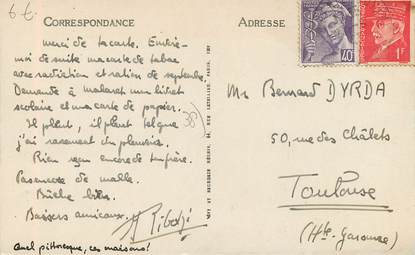 6 €
CORRESPONDANCE
merci de ta carte. Envoie-
moi de suite ma carte de tabac
avec radiation et ration de septembre.
Demande à un livret
scolaire et ma carte de papier.
Il pleut, il pleut tel que
j'ai rarement vu pleuvoir.
Rien reçu encore de ton frère.
Pas encore de malle.
Bûche bien.
Baisers amicaux.
Quel pittoresque, ces maisons!
38
ADRESSE
40
1F
Mr Bernard DYRDA
50, rue des Châlets
Toulouse
(Hte-Garonne)